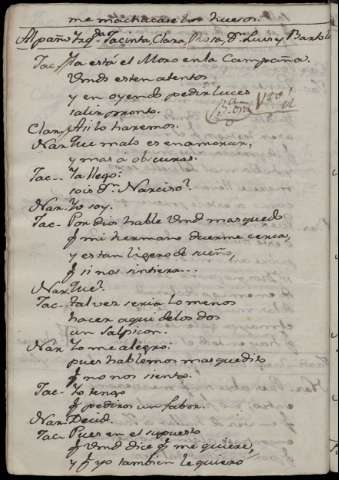 me machacase los huesos.
Al paño Izqda Jacinta, Clara, Rosa, Dn Luis y Bartolo
Jac. Ya esta el Moro en la Campaña.
Vmds esten atentos
y en oyendo pedir luces
salir pronto.
Clar. Asi lo haremos.
Nar. Que malo es enamorar,
y mas a obscuras.
Jac. Ya llego:
sois Dn Narciso?
Nar. Yo soy.
Jac. Por Dios hable Vmd mas quedo
q mi hermano duerme cerca,
y es tan ligero de sueño,
q si nos sintiera...
Nar. Que?
Jac. tal vez seria lo menos
hacer aqui de los dos
un salpicon.
Nar. Yo me alegro:
pues hablemos mas quedito
q no nos sienta.
Jac. Yo tengo
q pediros un fabor.
Nar. Decid.
Jac. Pues en el supuesto
q Vmd dice q me quiere,
y q yo tambien le quiero